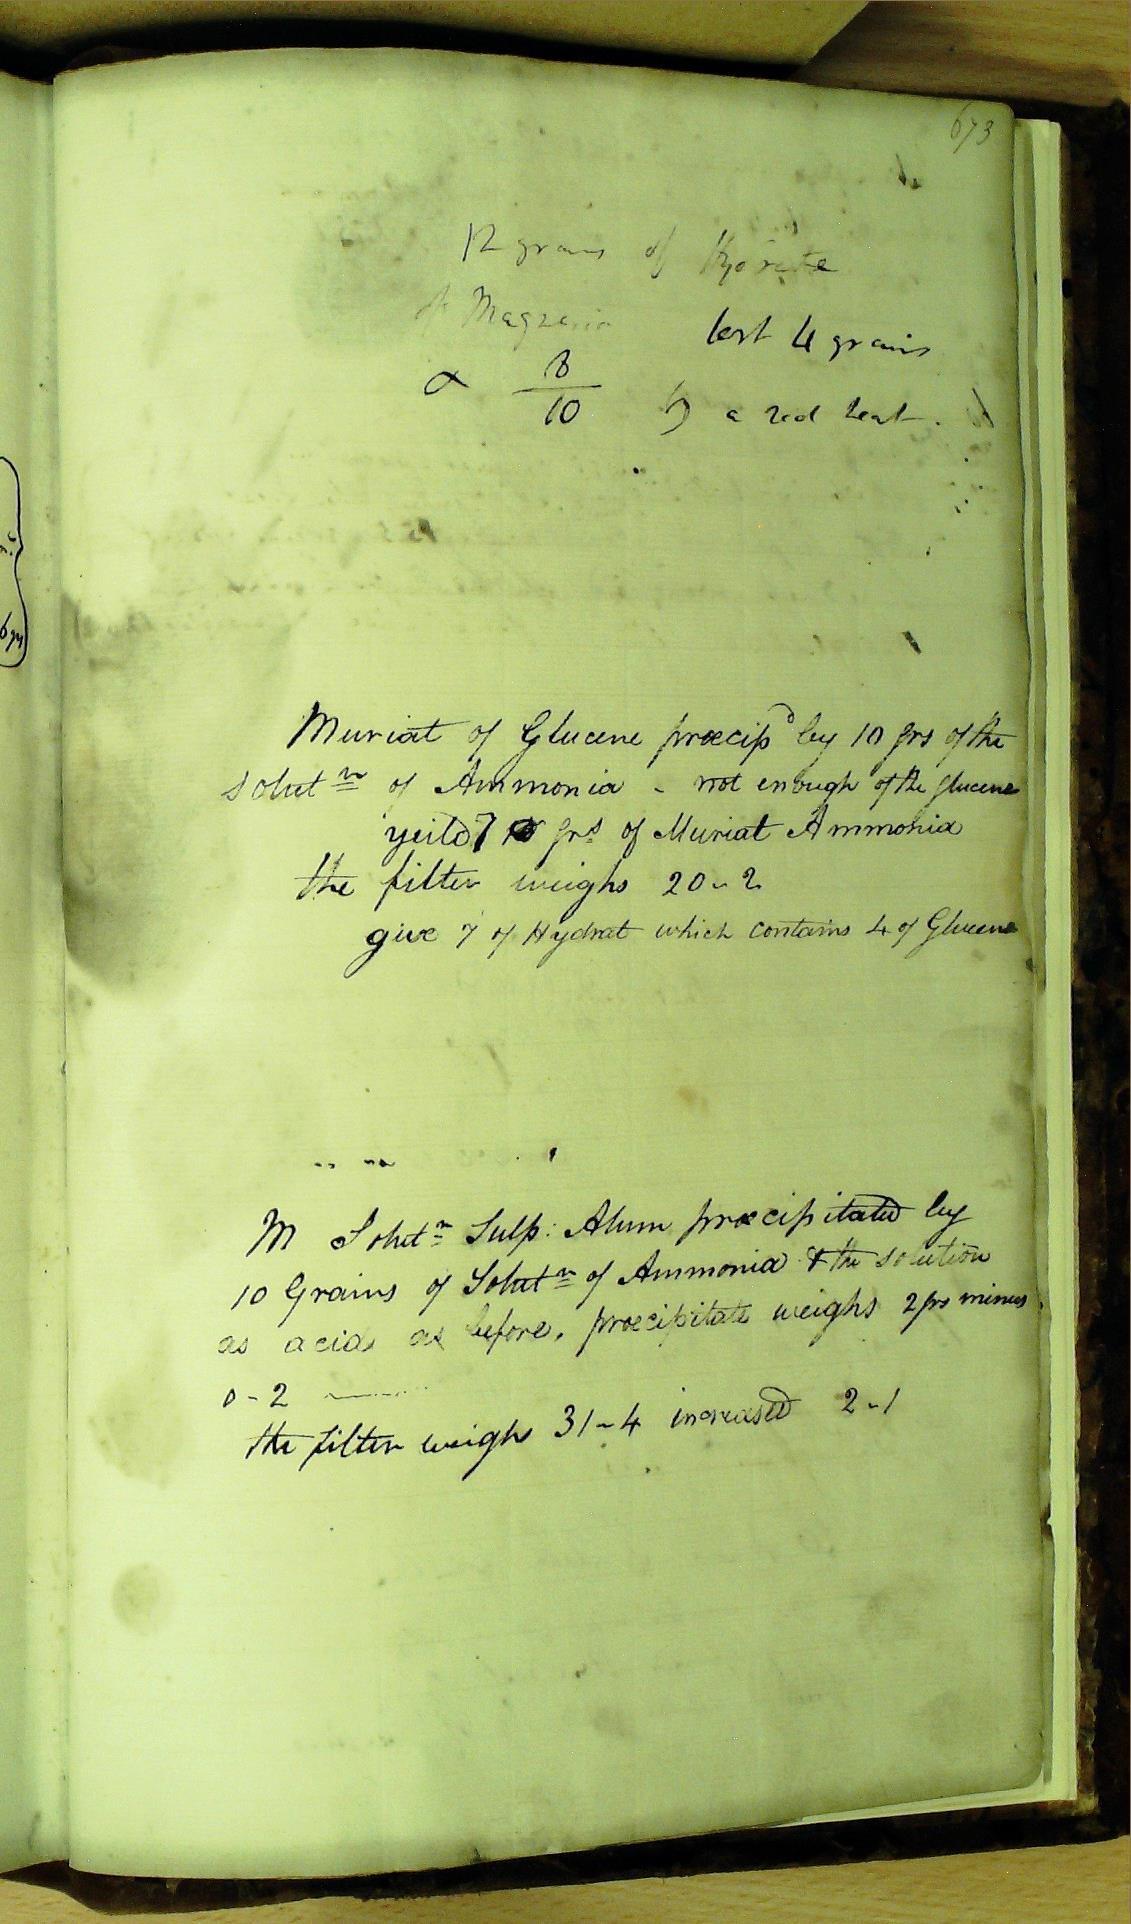 673
12 grains of
of Magnesia lost 4 grains
∝ 8/10 by a red heat.
Muriat of Glucene præcipd by 10 grs of the
solutn of Ammonia - not enough of the glucene
yeild 7 grs of Muriat Ammonia
the filter weighs 20-2
give 7 of Hydrat which contains 4 of Glucene
M Solutn Sulp: Alum præcipitated by
10 Grains of Solutn of Ammonia & the solution
as acid as before, præcipitate weighs 2 grs minus
0-2
the filter weighs 31-4 increased 2-1